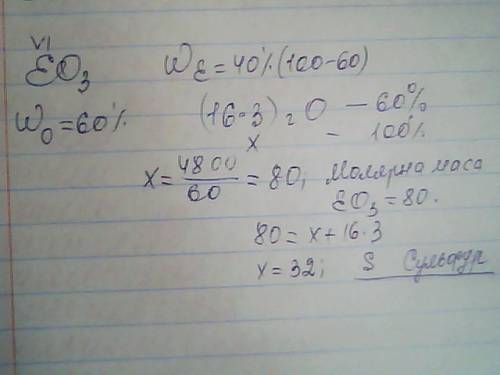 VI
EO₃ Wε = 40% (100-60)
W₀ = 60% (16·3) г O — 60%
x — 100%
x = 4800/60 = 80; Молярна маса
EO₃ = 80.
80 = x + 16·3
x = 32; S Сульфур